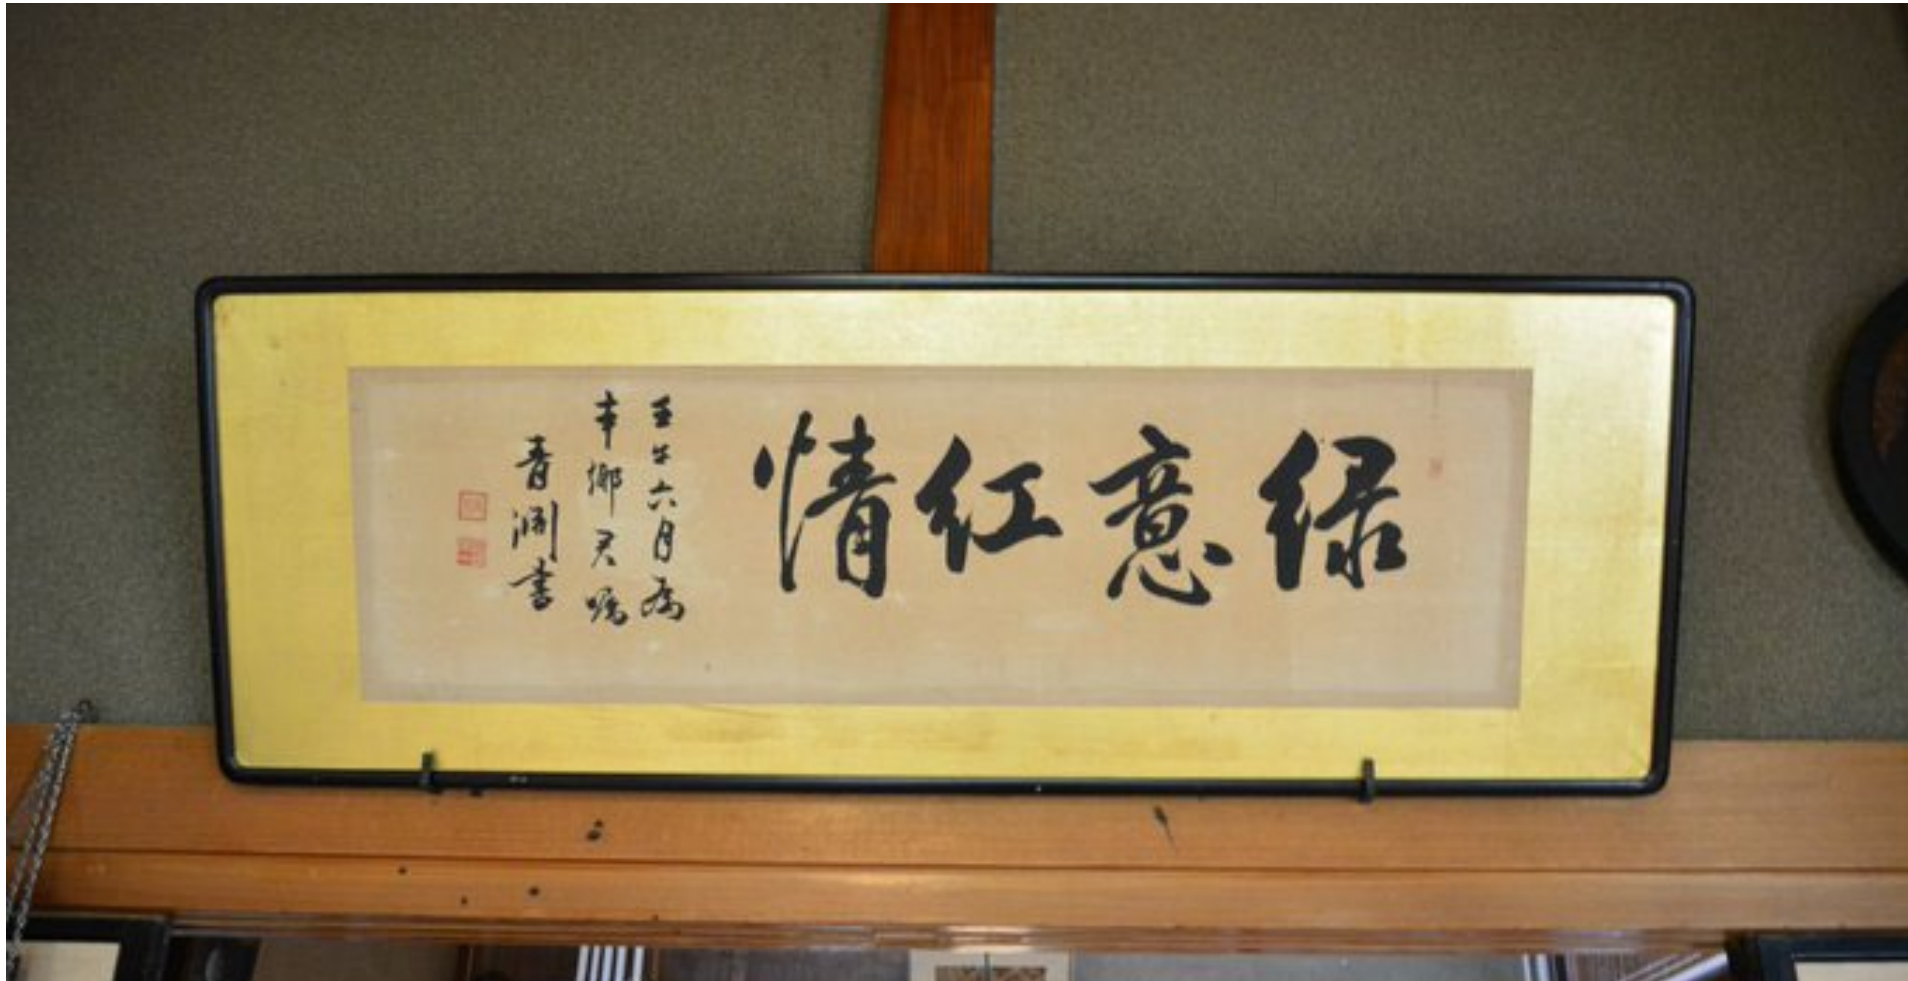 緑意紅情
壬午六月為
本郷君嘱
青淵書